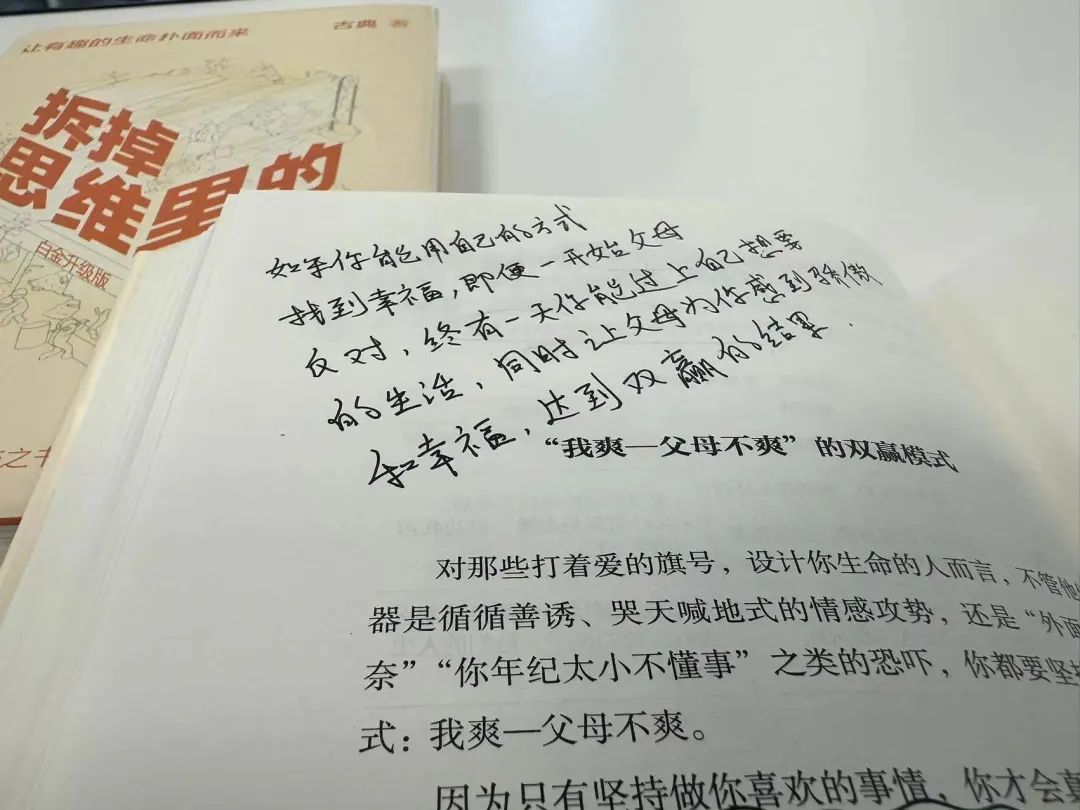 让有趣的生命扑面而来
古典 著
拆掉
思维里的
白金升级版
之书
如果你能用自己的方式
找到幸福，即便一开始父母
反对，终有一天你能过上自己想要
的生活，同时让父母为你感到骄傲
和幸福，达到双赢的结果．
“我爽—父母不爽”的双赢模式
对那些打着爱的旗号，设计你生命的人而言，不管他
器是循循善诱、哭天喊地式的情感攻势，还是“外面
奈”“你年纪太小不懂事”之类的恐吓，你都要坚持
式：我爽—父母不爽。
因为只有坚持做你喜欢的事情，你才会真